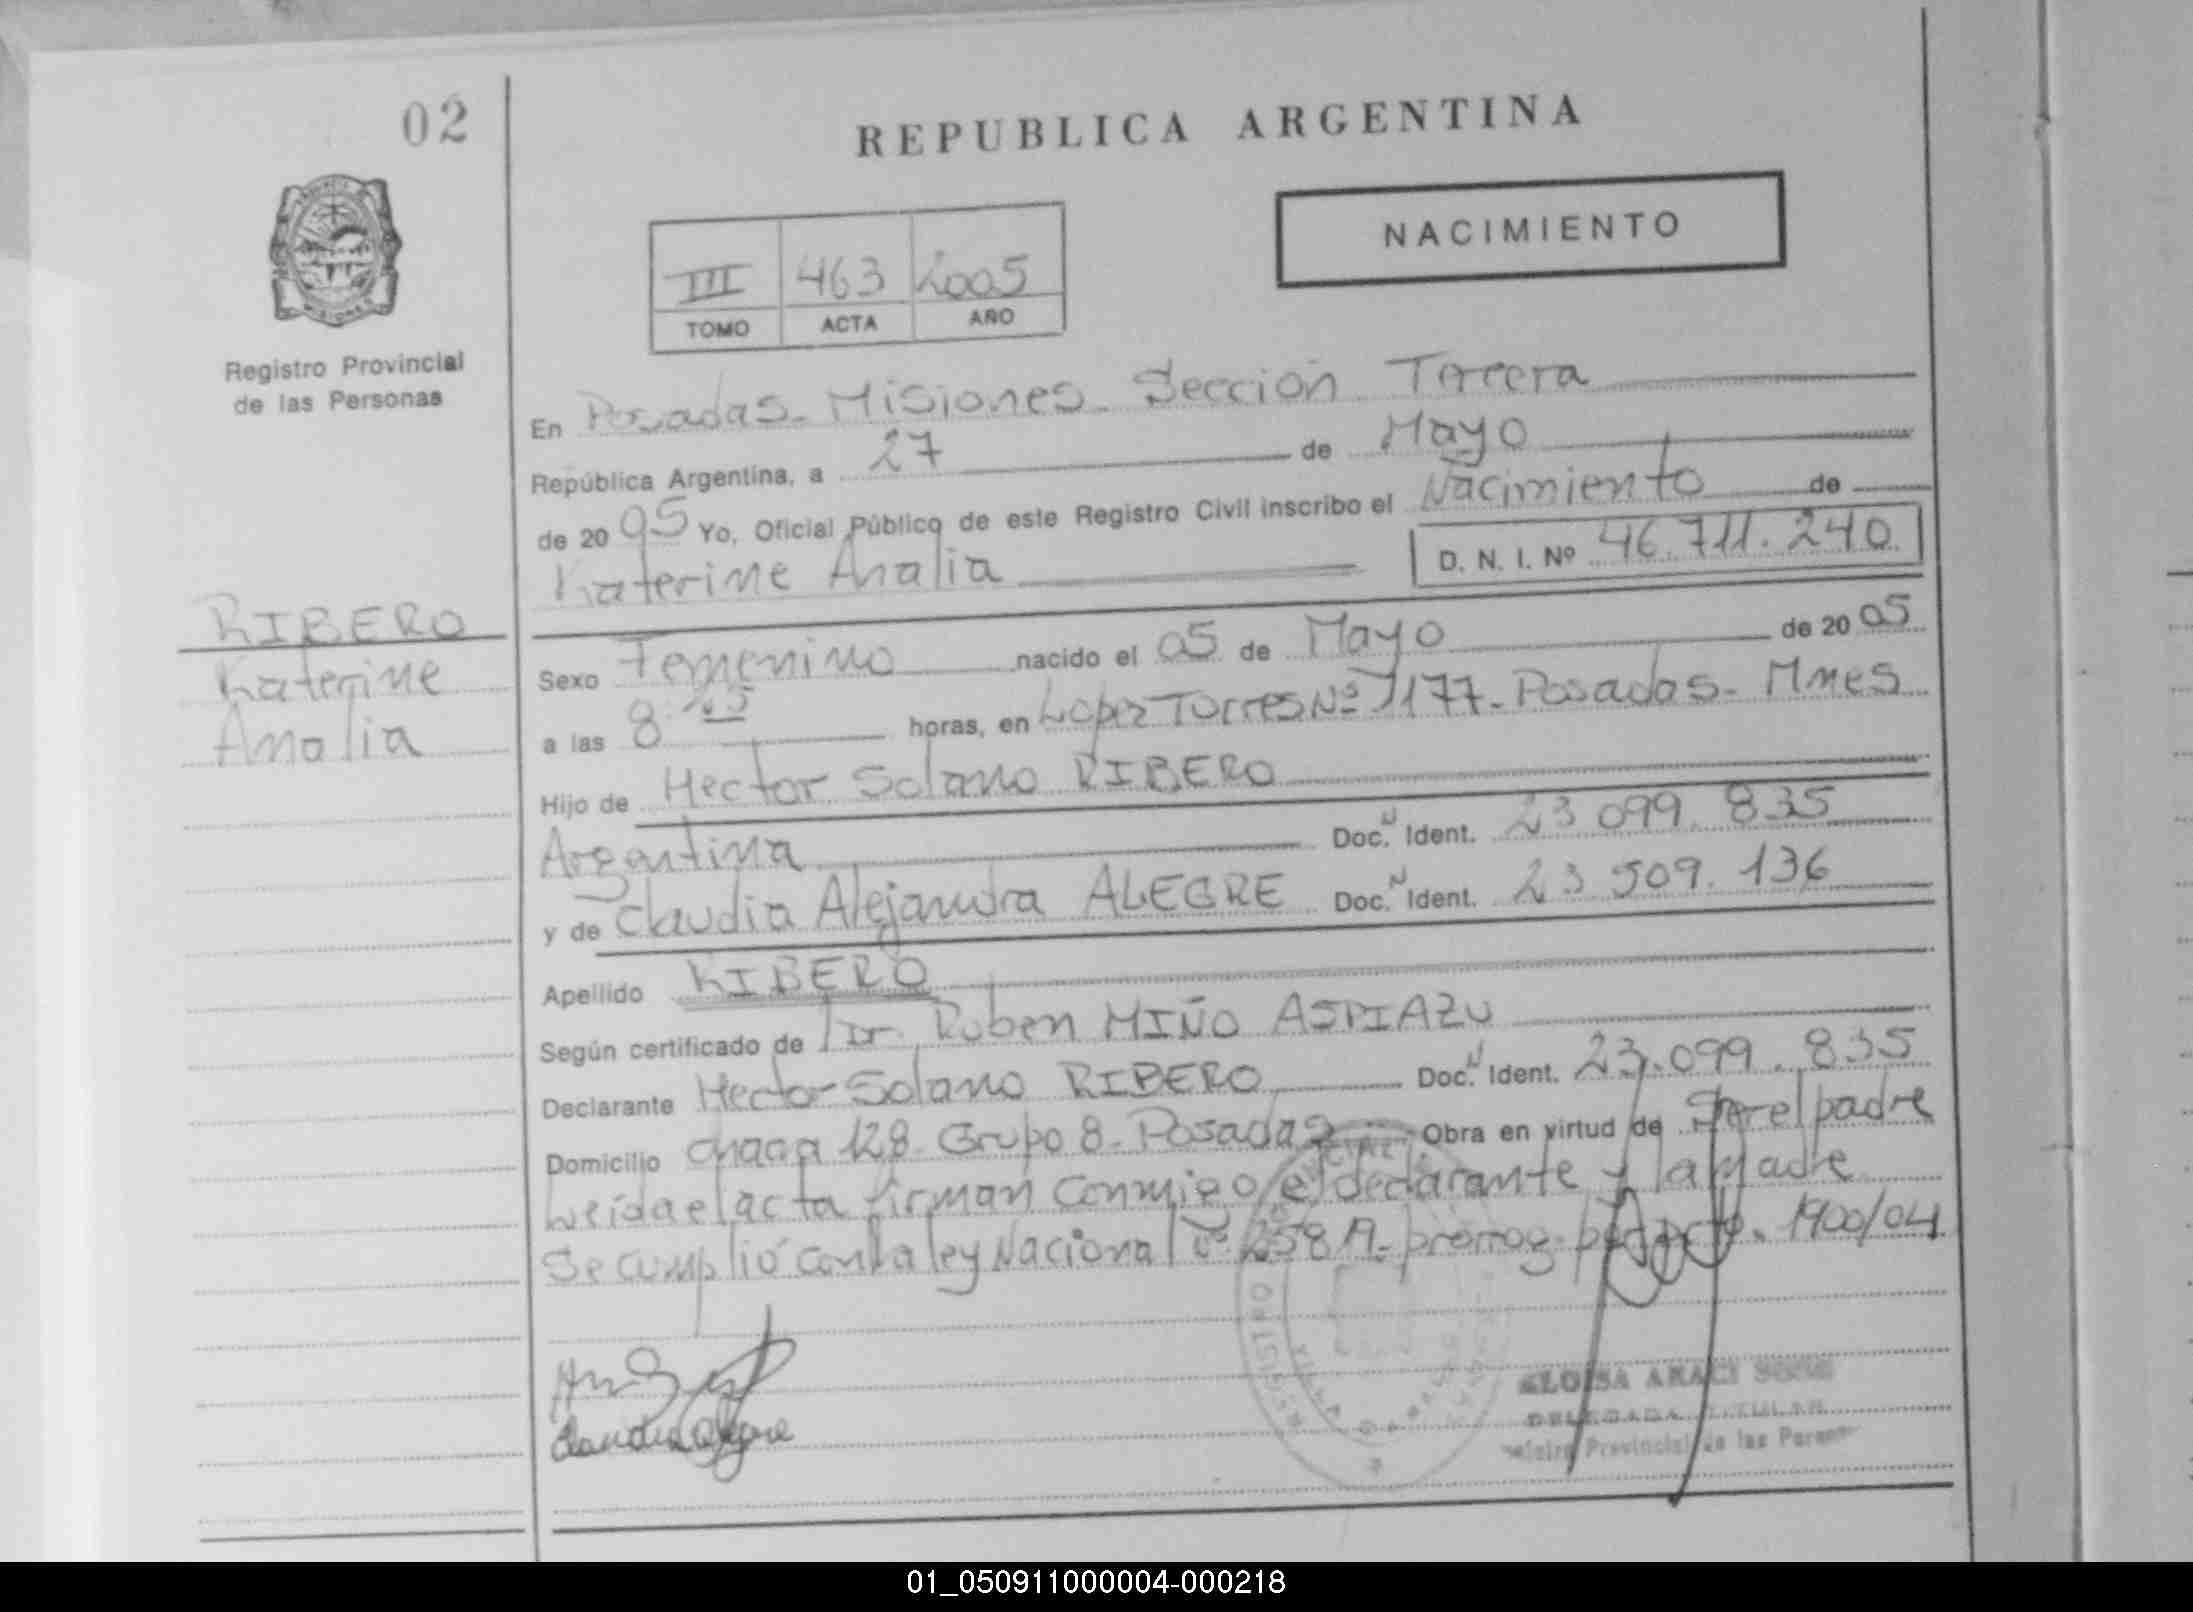 02
REPUBLICA ARGENTINA
NACIMIENTO
III 463 2005
TOMO ACTA AÑO
Registro Provincial
de las Personas
En Posadas - Misiones - Sección Tercera
República Argentina, a 27 de Mayo
de 2005 Yo, Oficial Público de este Registro Civil inscribo el Nacimiento de
Katerine Analia D. N. I. Nº 46.711.240
RIBERO
Katerine
Analia
Sexo Femenino nacido el 05 de Mayo de 2005
a las 8 horas, en Lopez Torres Nº 1177 - Posadas - Mnes
Hijo de Hector Solano RIBERO
Argentina Doc. N Ident. 23 099. 835
y de Claudia Alejandra ALEGRE Doc. N Ident. 23 509. 136
Apellido RIBERO
Según certificado de Dr. Ruben MIÑO ASPIAZU
Declarante Hector Solano RIBERO Doc. N Ident. 23.099. 835
Domicilio Chacra 128 - Grupo 8 - Posadas Obra en virtud de Ser el padre
Leída el acta firman Conmigo el declarante y la Madre
Se cumplió con la ley Nacional 1900/04
Claudia Alegre
ELOISA ARACI
DELEGADA TITULAR
Registro Provincial de las Personas
01_050911000004-000218